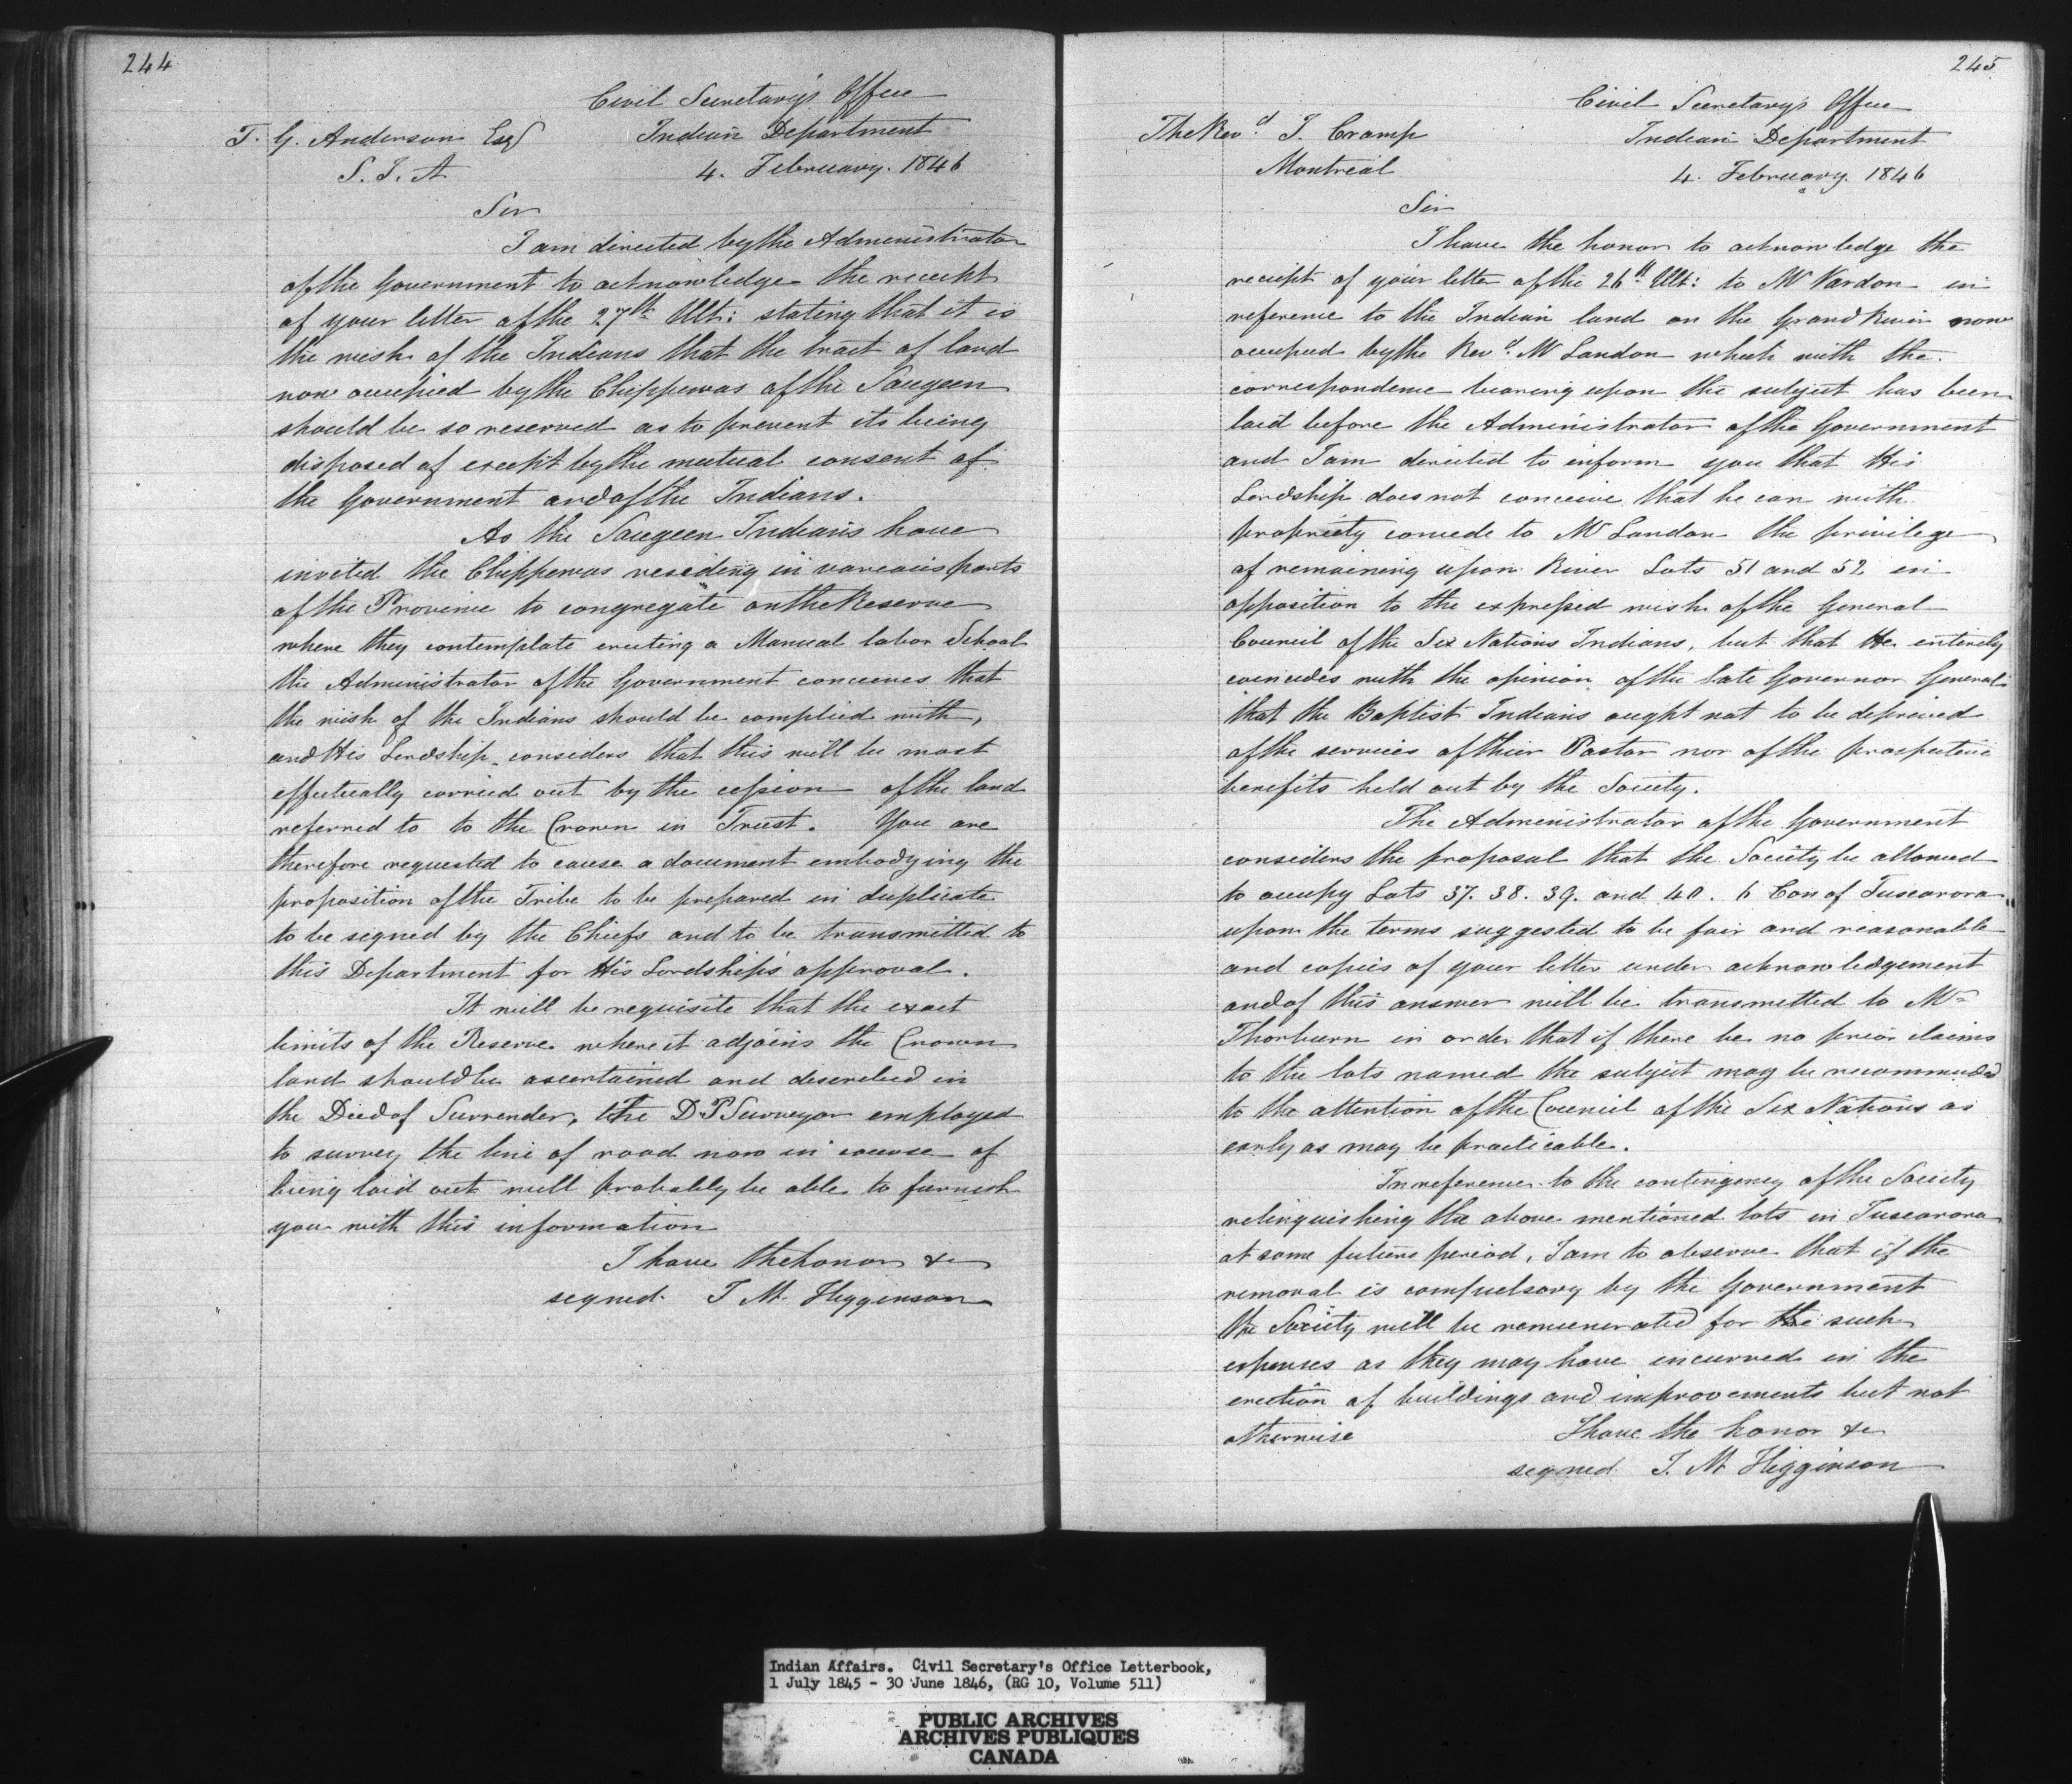 244
Civil Secretary's Office
T. G. Anderson Esq
Indian Department
S. I. A
4. February. 1846
Sir
I am directed by the Administrator
of the Government to acknowledge the receipt
of your letter of the 27th Ult: stating that it is
the wish of the Indians that the tract of land
now occupied by the Chippewas of the Saugeen
should be so reserved as to prevent its being
disposed of except by the mutual consent of
the Government and of the Indians.
As the Saugeen Indians have
invited the Chippewas residing in various parts
of the Province to congregate on the Reserve
where they contemplate erecting a Manual labor School
the Administrator of the Government conceives that
the wish of the Indians should be complied with,
and His Lordship considers that this will be most
effectually carried out by the cession of the land
referred to to the Crown in Trust. You are
therefore requested to cause a document embodying the
proposition of the Tribe to be prepared in duplicate
to be signed by the Chiefs and to be transmitted to
this Department for His Lordship's approval.
It will be requisite that the exact
limits of the Reserve where it adjoins the Crown
land should be ascertained and described in
the Deed of Surrender, the D. P Surveyor employed
to survey the line of road now in course of
being laid out will probably be able to furnish
you with this information
I have the honor &c
signed. J M. Higginson
245
Civil Secretary's Office
The Revd. J. Cramp
Indian Department
Montreal
4. February. 1846
Sir
I have the honor to acknowledge the
receipt of your letter of the 26th Ult: to Mr Vardon in
reference to the Indian land on the Grand River now
occupied by the Revd. Mr Landon which with the
correspondence bearing upon the subject has been
laid before the Administrator of the Government
and I am directed to inform you that His
Lordship does not conceive that he can with
propriety concede to Mr Landon the privilege
of remaining upon River Lots 51 and 52 in
opposition to the expressed wish of the General
Council of the Six Nations Indians, but that He entirely
coincides with the opinion of the late Governor General
that the Baptist Indians ought not to be deprived
of the services of thier Pastor nor of the prospective
benefits held out by the Society.
The Administrator of the Government
considers the proposal that the Society be allowed
to occupy Lots 37. 38. 39. and 40. 6 Con of Tuscarora
upon the terms suggested to be fair and reasonable
and copies of your letter under acknowledgement
and of this answer will be transmitted to Mr
Thorburn in order that if there be no prior claims
to the lots named the subject may be recommended
to the attention of the Council of the Six Nations as
early as may be practicable.
In reference to the contingency of the Society
relinquishing the above mentioned lots in Tuscarora
at some future period, I am to observe that if the
removal is compulsory by the Government
the Society will be remunerated for the such
expenses as they may have incurred in the
erection of buildings and improvements but not
otherwise
I have the honor &c
signed J. M Higginson
Indian Affairs. Civil Secretary's Office Letterbook,
1 July 1845 - 30 June 1846, (RG 10, Volume 511)
PUBLIC ARCHIVES
ARCHIVES PUBLIQUES
CANADA